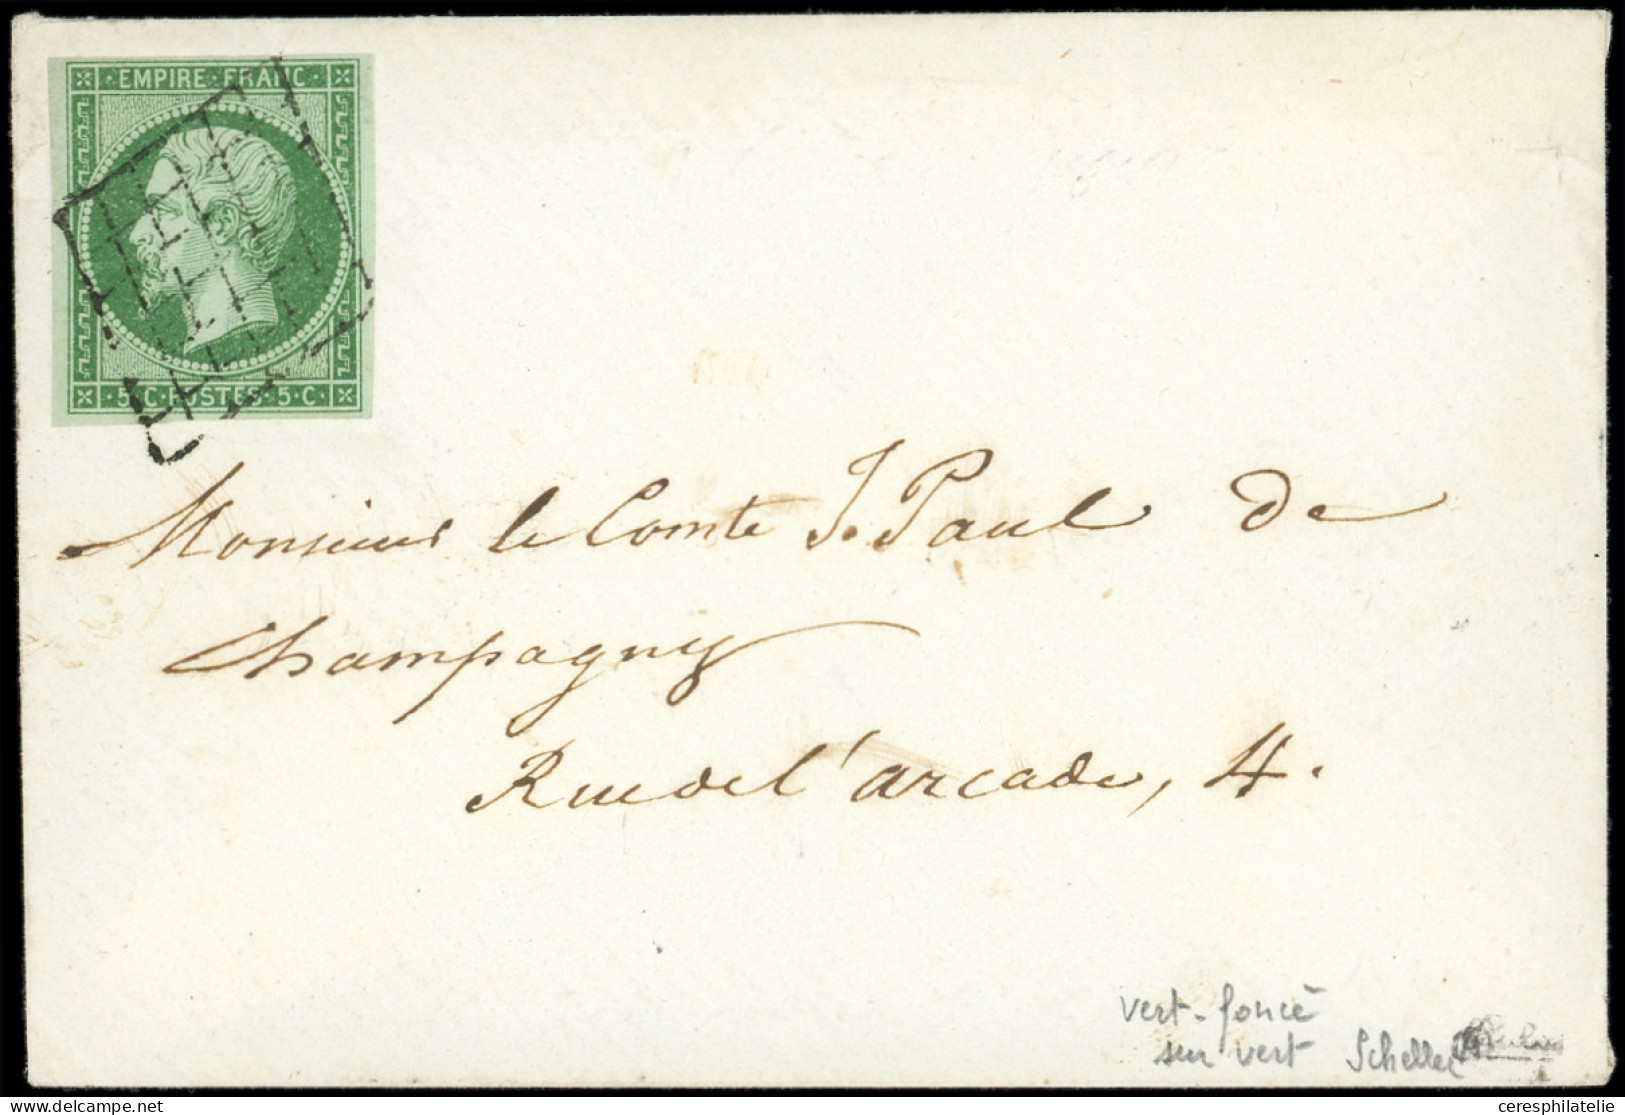 EMPIRE FRANC
5·C·POSTES·5·C
Monsieur le Comte J. Paul de
Champagny
Rue de l'arcade, 4.
vert-foncé
sur vert
Scheller
ceresphilatelie